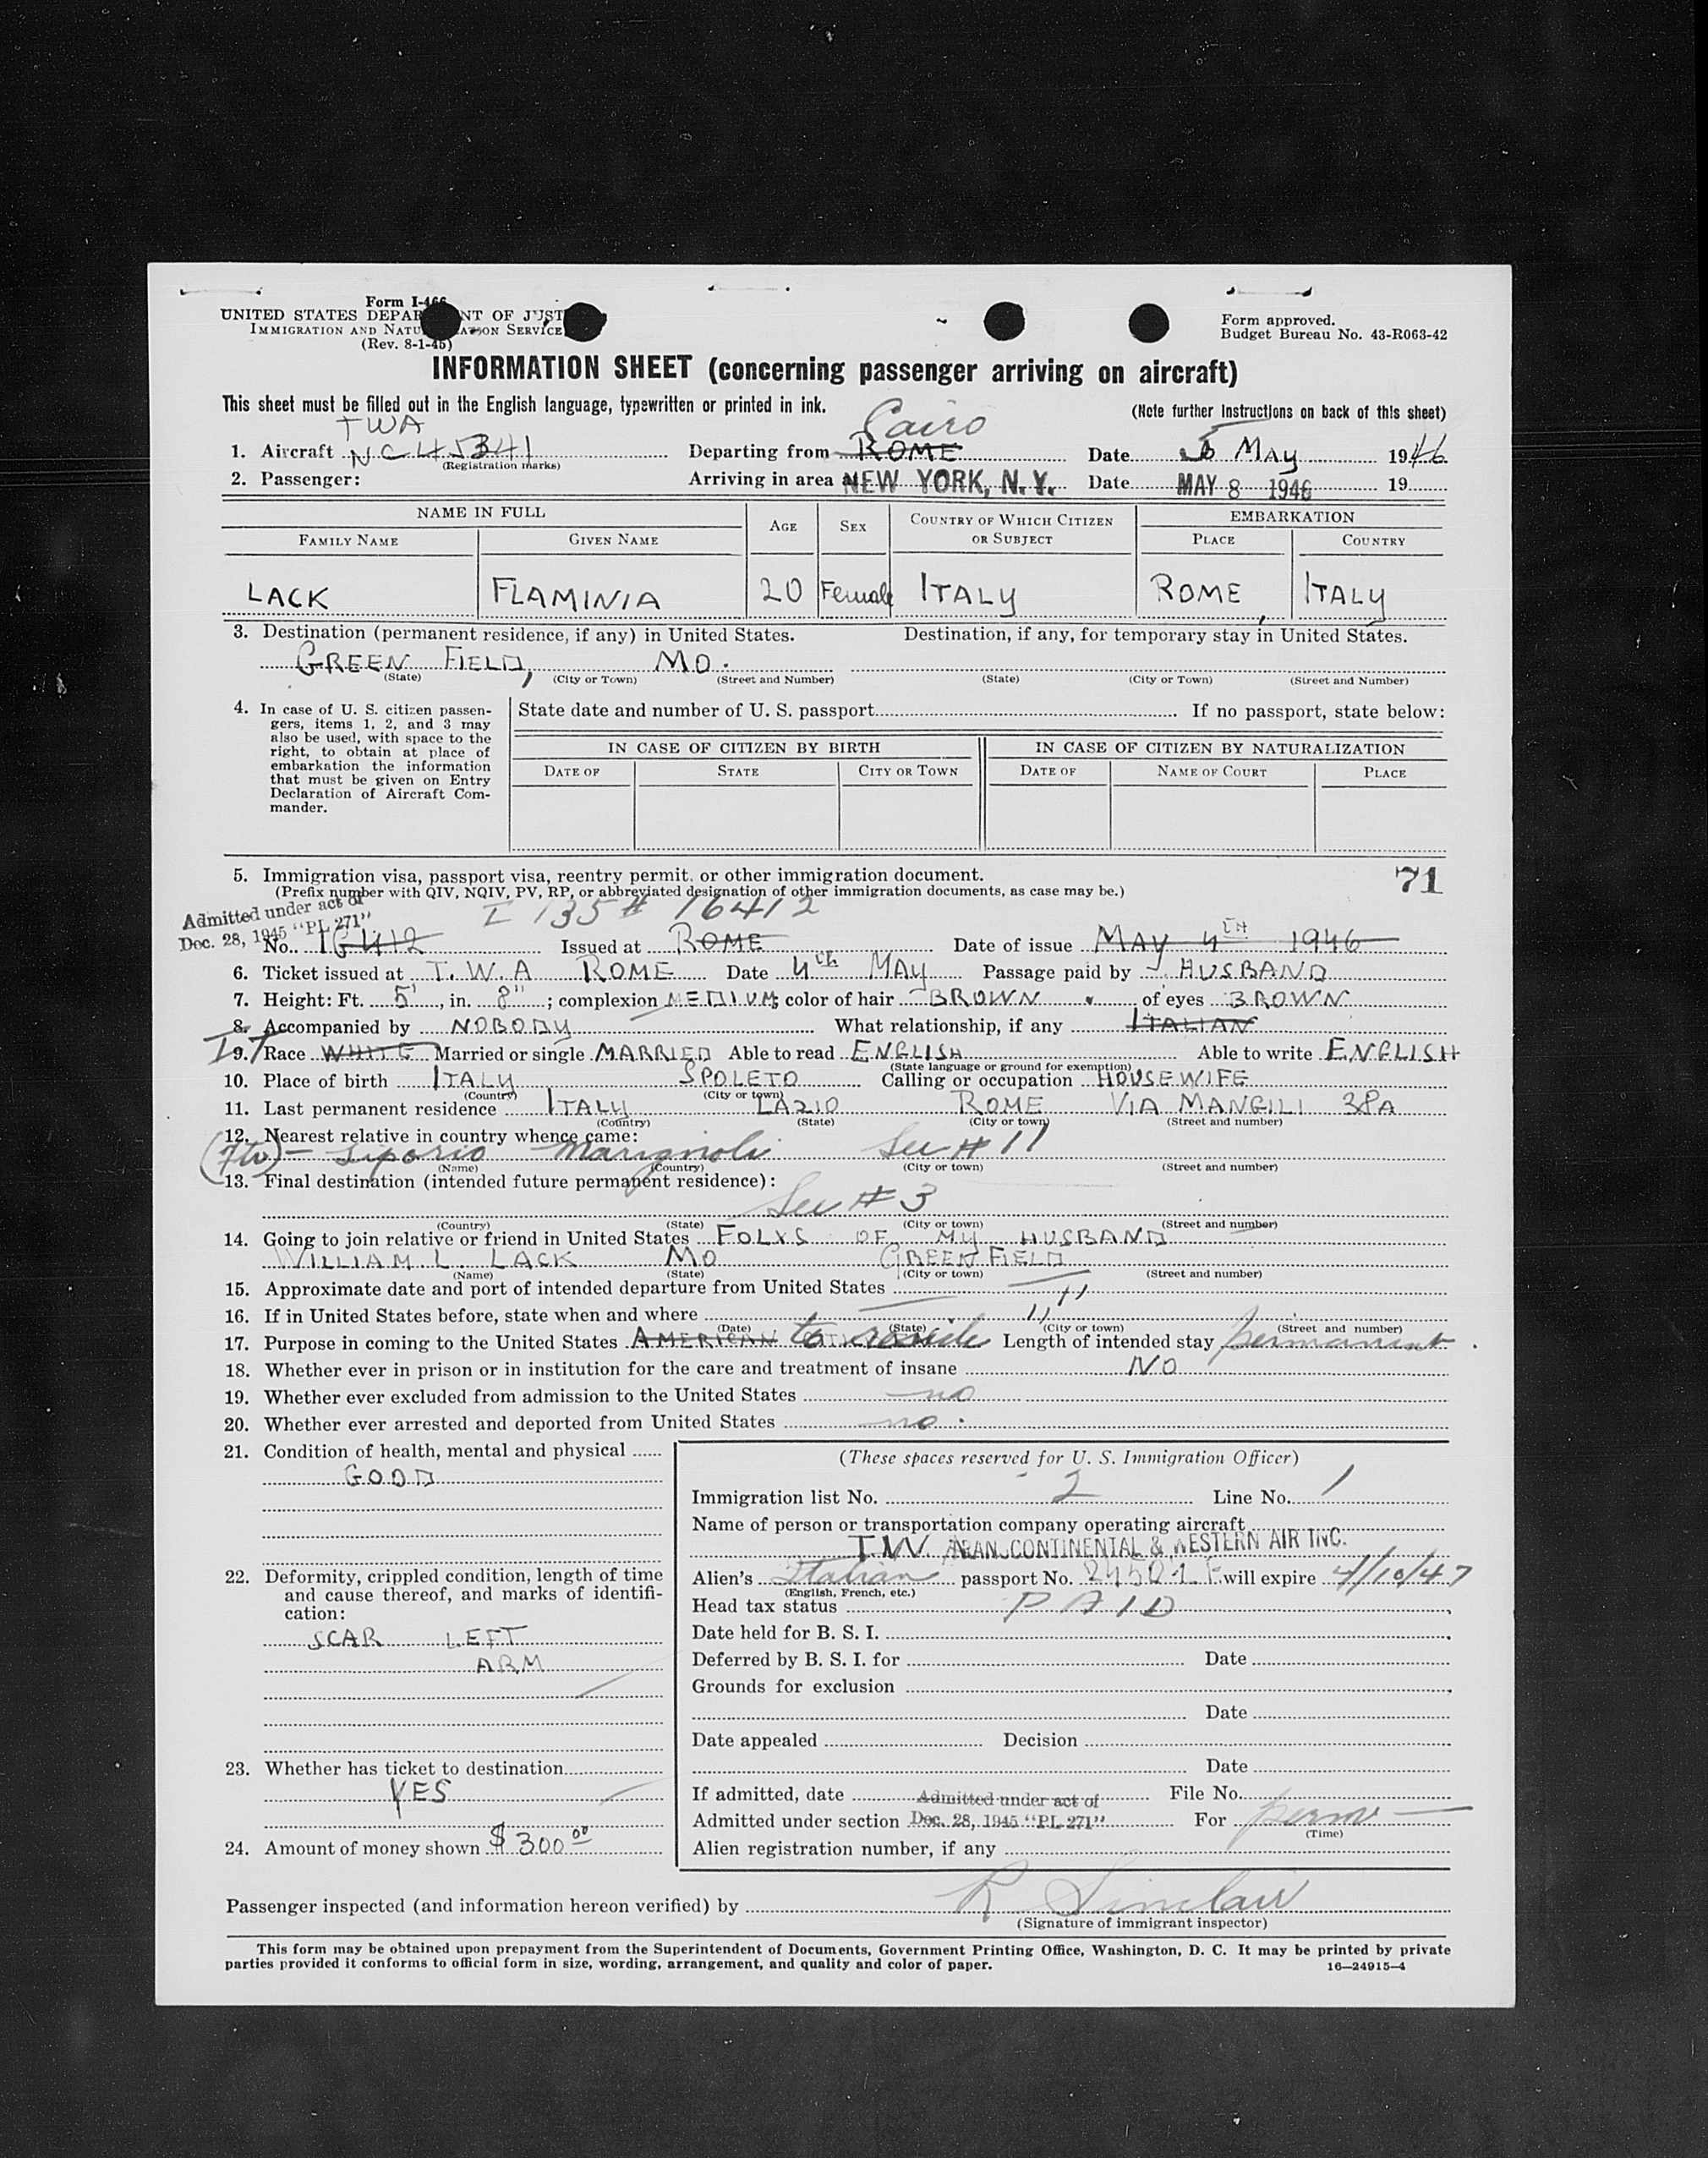 Form I-466
UNITED STATES DEPARTMENT OF JUSTICE
IMMIGRATION AND NATURALIZATION SERVICE
(Rev. 8-1-45)
Form approved.
Budget Bureau No. 43-R063-42
INFORMATION SHEET (concerning passenger arriving on aircraft)
This sheet must be filled out in the English language, typewritten or printed in ink.
(Note further instructions on back of this sheet)
TWA
Cairo
1. Aircraft NC45341 Departing from ROME Date 5 MAY 1946
(Registration marks)
2. Passenger: Arriving in area NEW YORK, N.Y. Date MAY 8 1946 19
NAME IN FULL AGE SEX COUNTRY OF WHICH CITIZEN OR SUBJECT EMBARKATION
FAMILY NAME GIVEN NAME PLACE COUNTRY
LACK FLAMINIA 20 Female ITALY ROME, ITALY
3. Destination (permanent residence, if any) in United States. Destination, if any, for temporary stay in United States.
GREEN FIELD, MO.
(State) (City or Town) (Street and Number) (State) (City or Town) (Street and Number)
4. In case of U. S. citizen passen-
gers, items 1, 2, and 3 may
also be used, with space to the
right, to obtain at place of
embarkation the information
that must be given on Entry
Declaration of Aircraft Com-
mander.
State date and number of U. S. passport If no passport, state below:
IN CASE OF CITIZEN BY BIRTH IN CASE OF CITIZEN BY NATURALIZATION
DATE OF STATE CITY OR TOWN DATE OF NAME OF COURT PLACE
71
5. Immigration visa, passport visa, reentry permit, or other immigration document.
(Prefix number with QIV, NQIV, PV, RP, or abbreviated designation of other immigration documents, as case may be.)
Admitted under act of
Dec. 28, 1945 "PL 271"
I 135 # 16412
No. 16412 Issued at ROME Date of issue MAY 4TH 1946
6. Ticket issued at T.W.A ROME Date 4th MAY Passage paid by HUSBAND
7. Height: Ft. 5', in. 8"; complexion MEDIUM; color of hair BROWN of eyes BROWN
8. Accompanied by NOBODY What relationship, if any ITALIAN
IT
9. Race WHITE Married or single MARRIED Able to read ENGLISH Able to write ENGLISH
(State language or ground for exemption)
10. Place of birth ITALY SPOLETO Calling or occupation HOUSEWIFE
(Country) (City or town)
11. Last permanent residence ITALY LAZIO ROME VIA MANGILI 38A
(Country) (State) (City or town) (Street and number)
12. Nearest relative in country whence came:
Marignoli See # 11
(Name) (Country) (City or town) (Street and number)
13. Final destination (intended future permanent residence):
See # 3
(Country) (State) (City or town) (Street and number)
14. Going to join relative or friend in United States FOLKS OF MY HUSBAND
WILLIAM L. LACK MO GREENFIELD
(Name) (State) (City or town) (Street and number)
15. Approximate date and port of intended departure from United States
16. If in United States before, state when and where
(Date) (State) (City or town) (Street and number)
17. Purpose in coming to the United States AMERICAN to reside Length of intended stay permanent
18. Whether ever in prison or in institution for the care and treatment of insane NO
19. Whether ever excluded from admission to the United States no
20. Whether ever arrested and deported from United States no.
21. Condition of health, mental and physical
GOOD
22. Deformity, crippled condition, length of time
and cause thereof, and marks of identifi-
cation:
SCAR LEFT
ARM
23. Whether has ticket to destination
YES
24. Amount of money shown $300 00
(These spaces reserved for U. S. Immigration Officer)
Immigration list No. 2 Line No. 1
Name of person or transportation company operating aircraft
TRANSCONTINENTAL & WESTERN AIR INC.
Alien's Italian passport No. will expire 4/10/47
(English, French, etc.)
Head tax status PAID
Date held for B. S. I.
Deferred by B. S. I. for Date
Grounds for exclusion
Date
Date appealed Decision
Date
If admitted, date Admitted under act of File No.
Admitted under section Dec. 28, 1945 "PL 271" For perm
(Time)
Alien registration number, if any
Passenger inspected (and information hereon verified) by R Sinclair
(Signature of immigrant inspector)
This form may be obtained upon prepayment from the Superintendent of Documents, Government Printing Office, Washington, D. C. It may be printed by private
parties provided it conforms to official form in size, wording, arrangement, and quality and color of paper. 16—24915-4